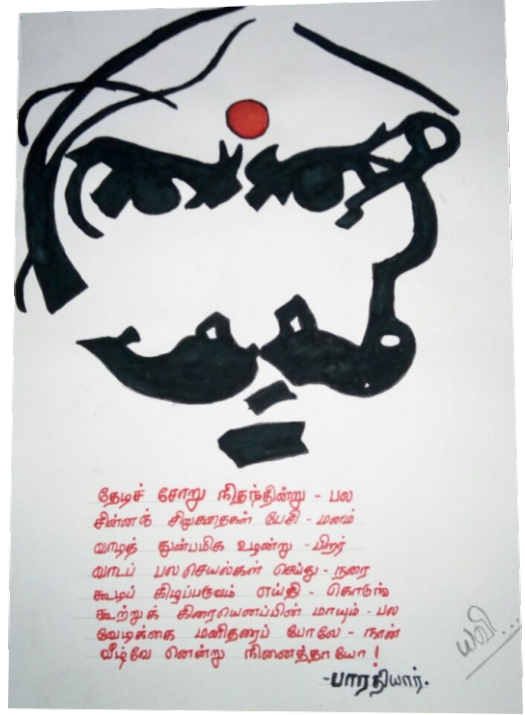 தேடிச் சோறு நிதந்தின்று - பல
சின்னச் சிறுகதைகள் பேசி - மனம்
வாடித் துன்பமிக உழன்று - பிறர்
வாடப் பலசெயல்கள் செய்து - நரை
கூடிப் கிழப்பருவம் எய்தி - கொடுங்
கூற்றுக் கிரையெனப்பின் மாயும் - பல
வேடிக்கை மனிதரைப் போலே - நான்
வீழ்வே னென்று நினைத்தாயோ!
-பாரதியார்.